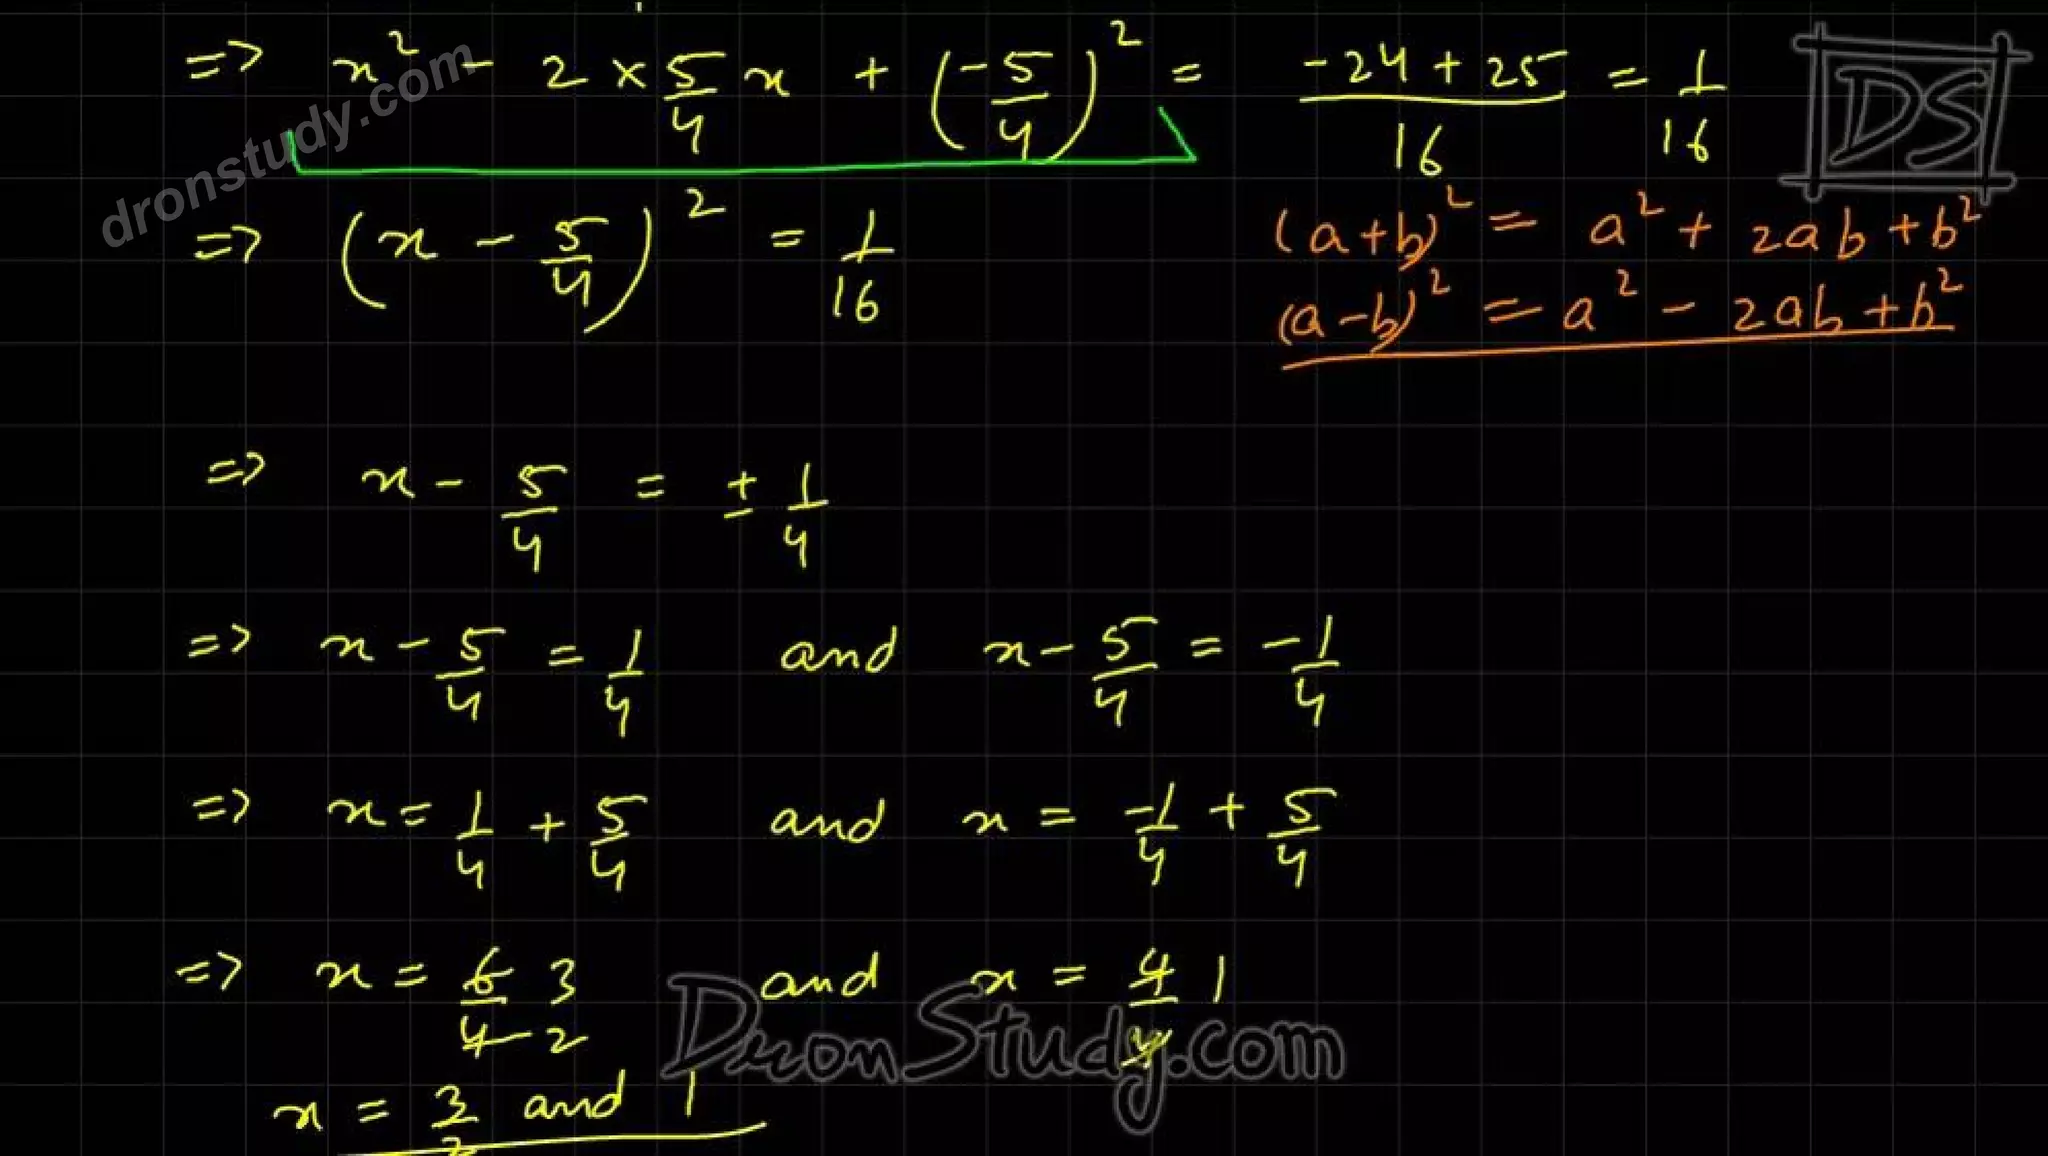 => x² - 2 × 5/4 x + (-5/4)² = (-24 + 25)/16 = 1/16
dronstudy.com
DS
=> (x - 5/4)² = 1/16
(a+b)² = a² + 2ab + b²
(a-b)² = a² - 2ab + b²
=> x - 5/4 = ± 1/4
=> x - 5/4 = 1/4 and x - 5/4 = -1/4
=> x = 1/4 + 5/4 and x = -1/4 + 5/4
=> x = 6/4 3 2 and x = 4/4 1
DronStudy.com
x = 3/2 and 1